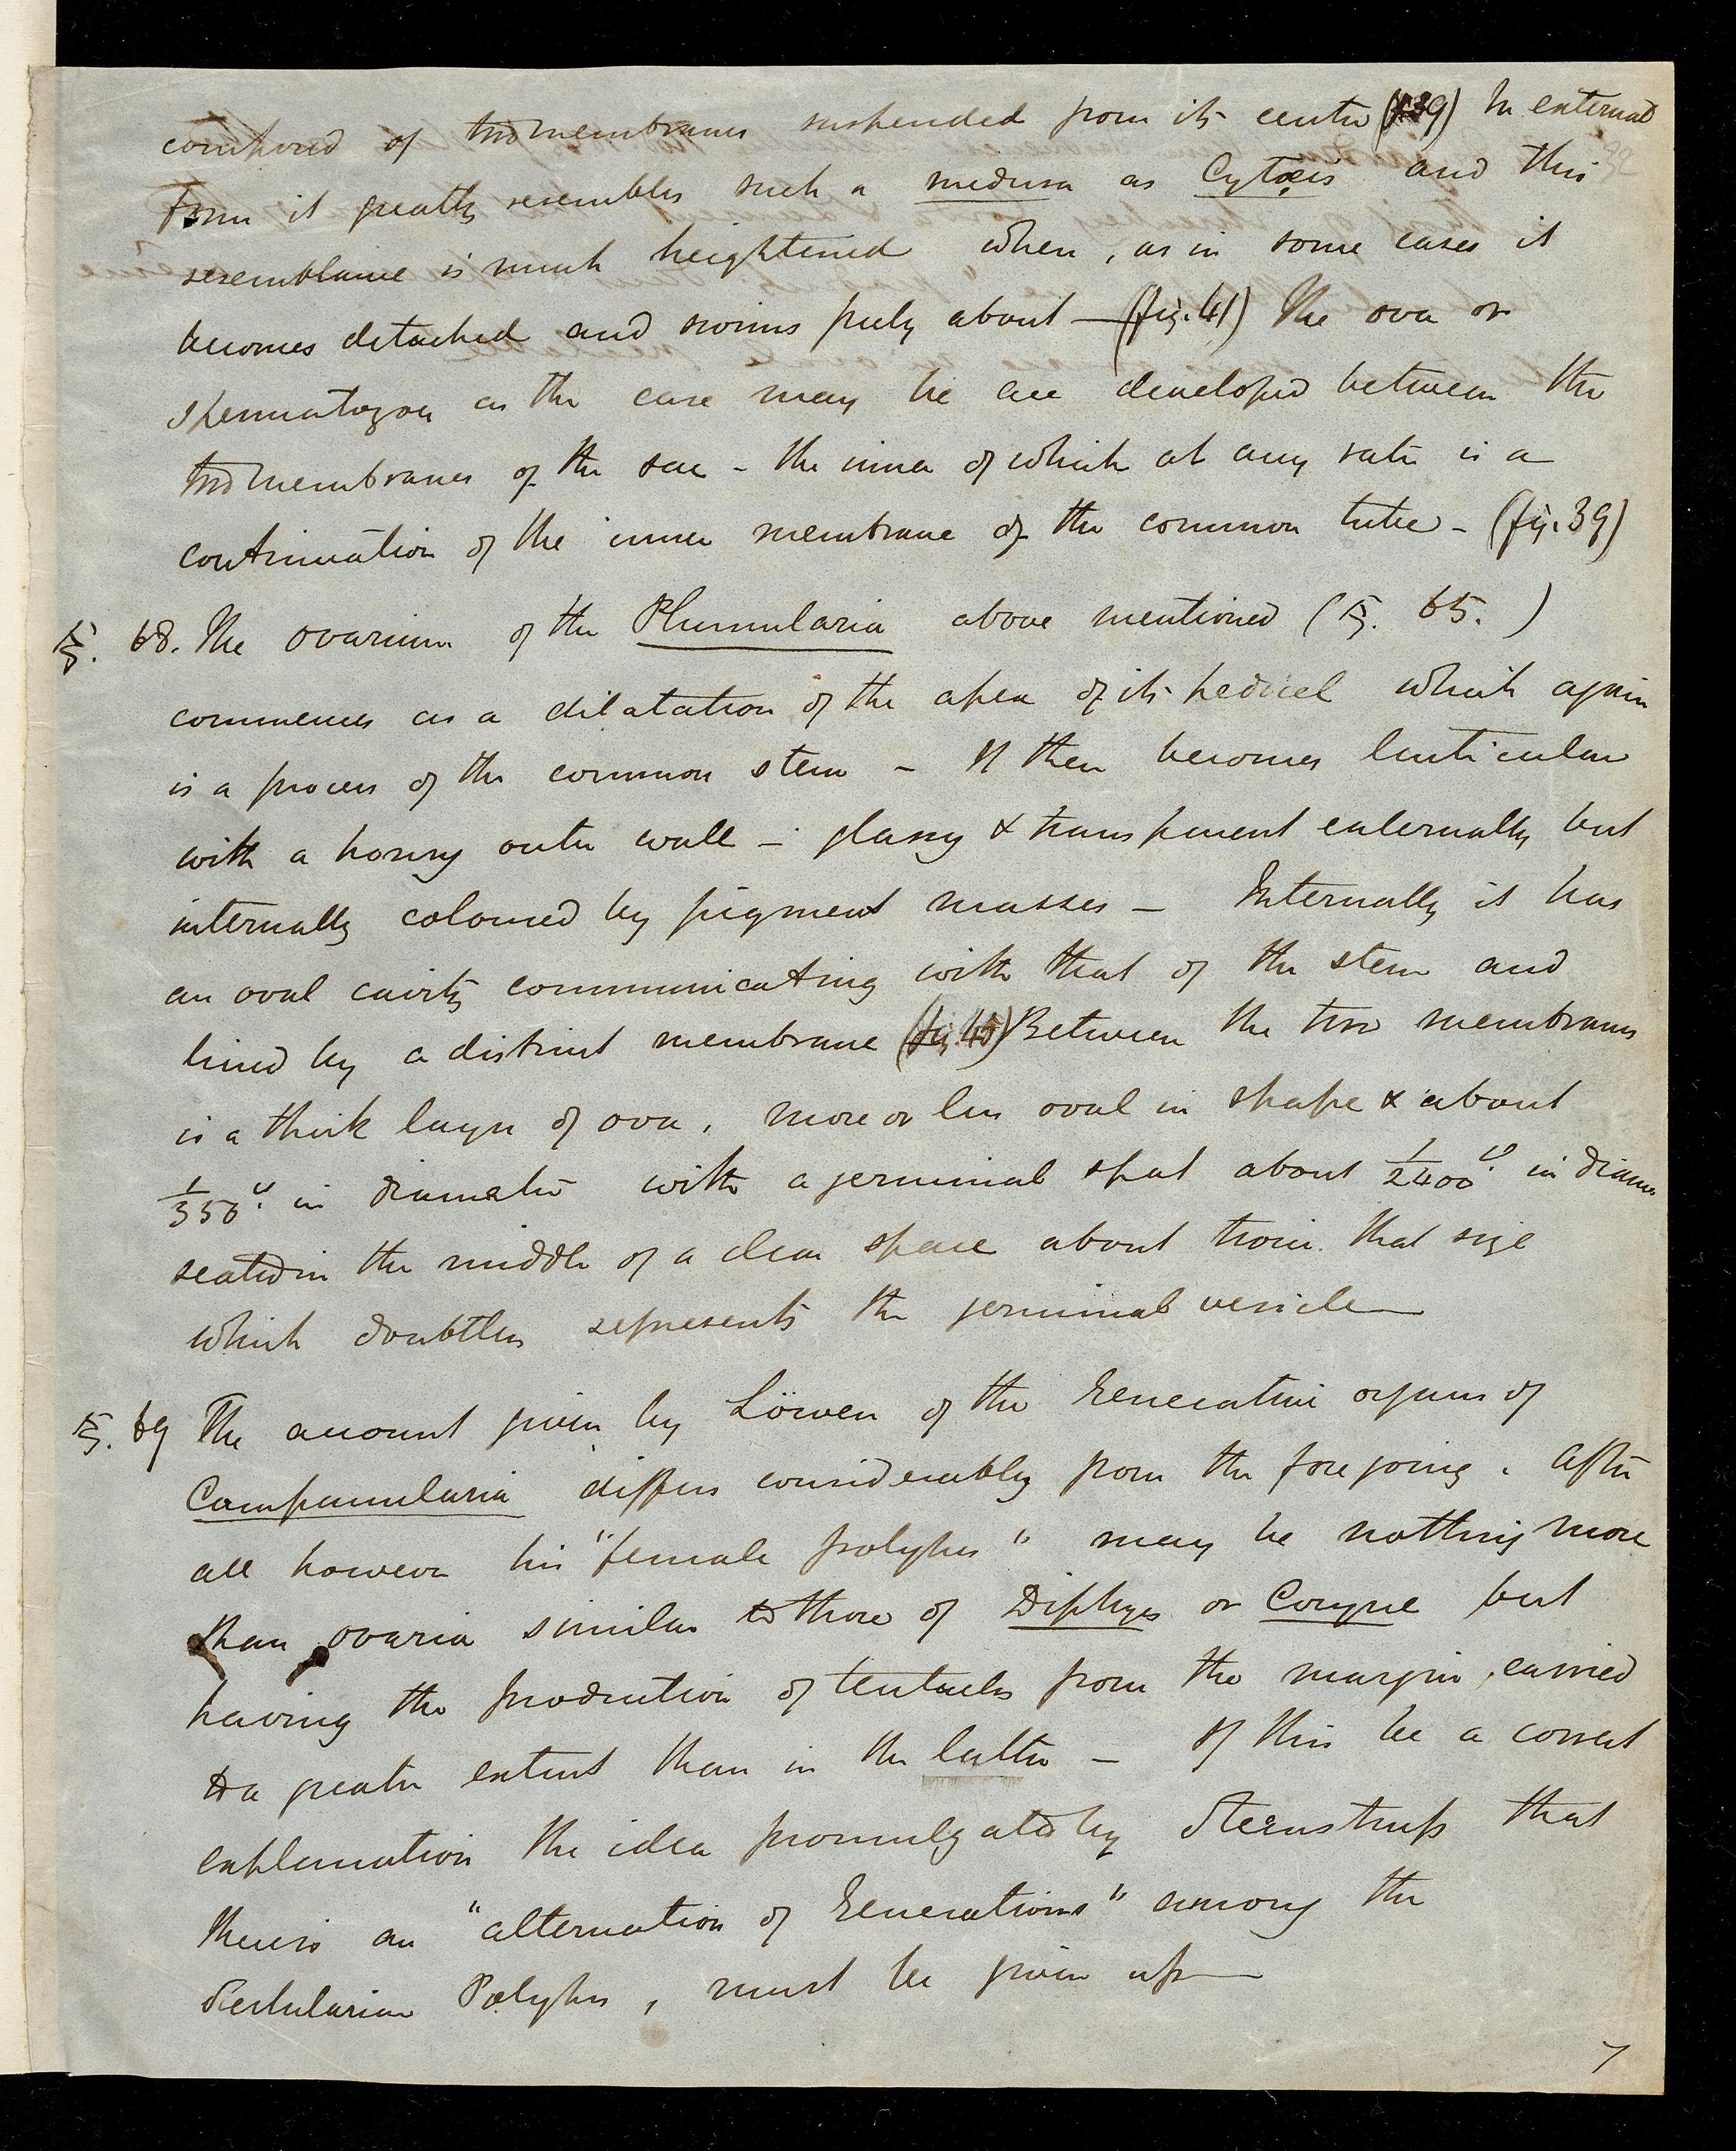 composed of two membranes suspended from its centre (f. 39) In external
form it greatly resembles such a medusa as Cytæis and this
resemblance is much heightened when, as in some cases it
becomes detached and swims freely about — (fig. 41) The ova or
spermatozoa as the case may be are developed between the
two membranes of the sac - the inner of which at any rate is a
continuation of the inner membrane of the common tube - (fig. 39)
§. 68. The ovarium of the Plumularia above mentioned (§. 65.)
commences as a dilatation of the apex of its pedicel which again
is a process of the common stem - It then becomes lenticular
with a horny outer wall - glassy & transparent externally but
internally coloured by pigment masses - Internally it has
an oval cavity communicating with that of the stem and
lined by a distinct membrane (fig. 45) Between the two membranes
is a thick layer of ova, more or less oval in shape & about
1/350" in diameter with a germinal spot about 1/2400" in diam
seated in the middle of a clear space about twice that size
which doubtless represents the germinal vesicle —
§. 69 The account given by Löwen of the Generative organs of
Campanularia differs considerably from the foregoing. After
all however his "female polypes" may be nothing more
than ovaria similar to those of Diphyes or Coryne but
having the production of tentacles from the margin, carried
to a greater extent than in the latter - If this be a correct
explanation the idea promulgated by Steenstrup that
there is an "alternation of Generations" among the
Sertularian Polypes, must be given up —
7